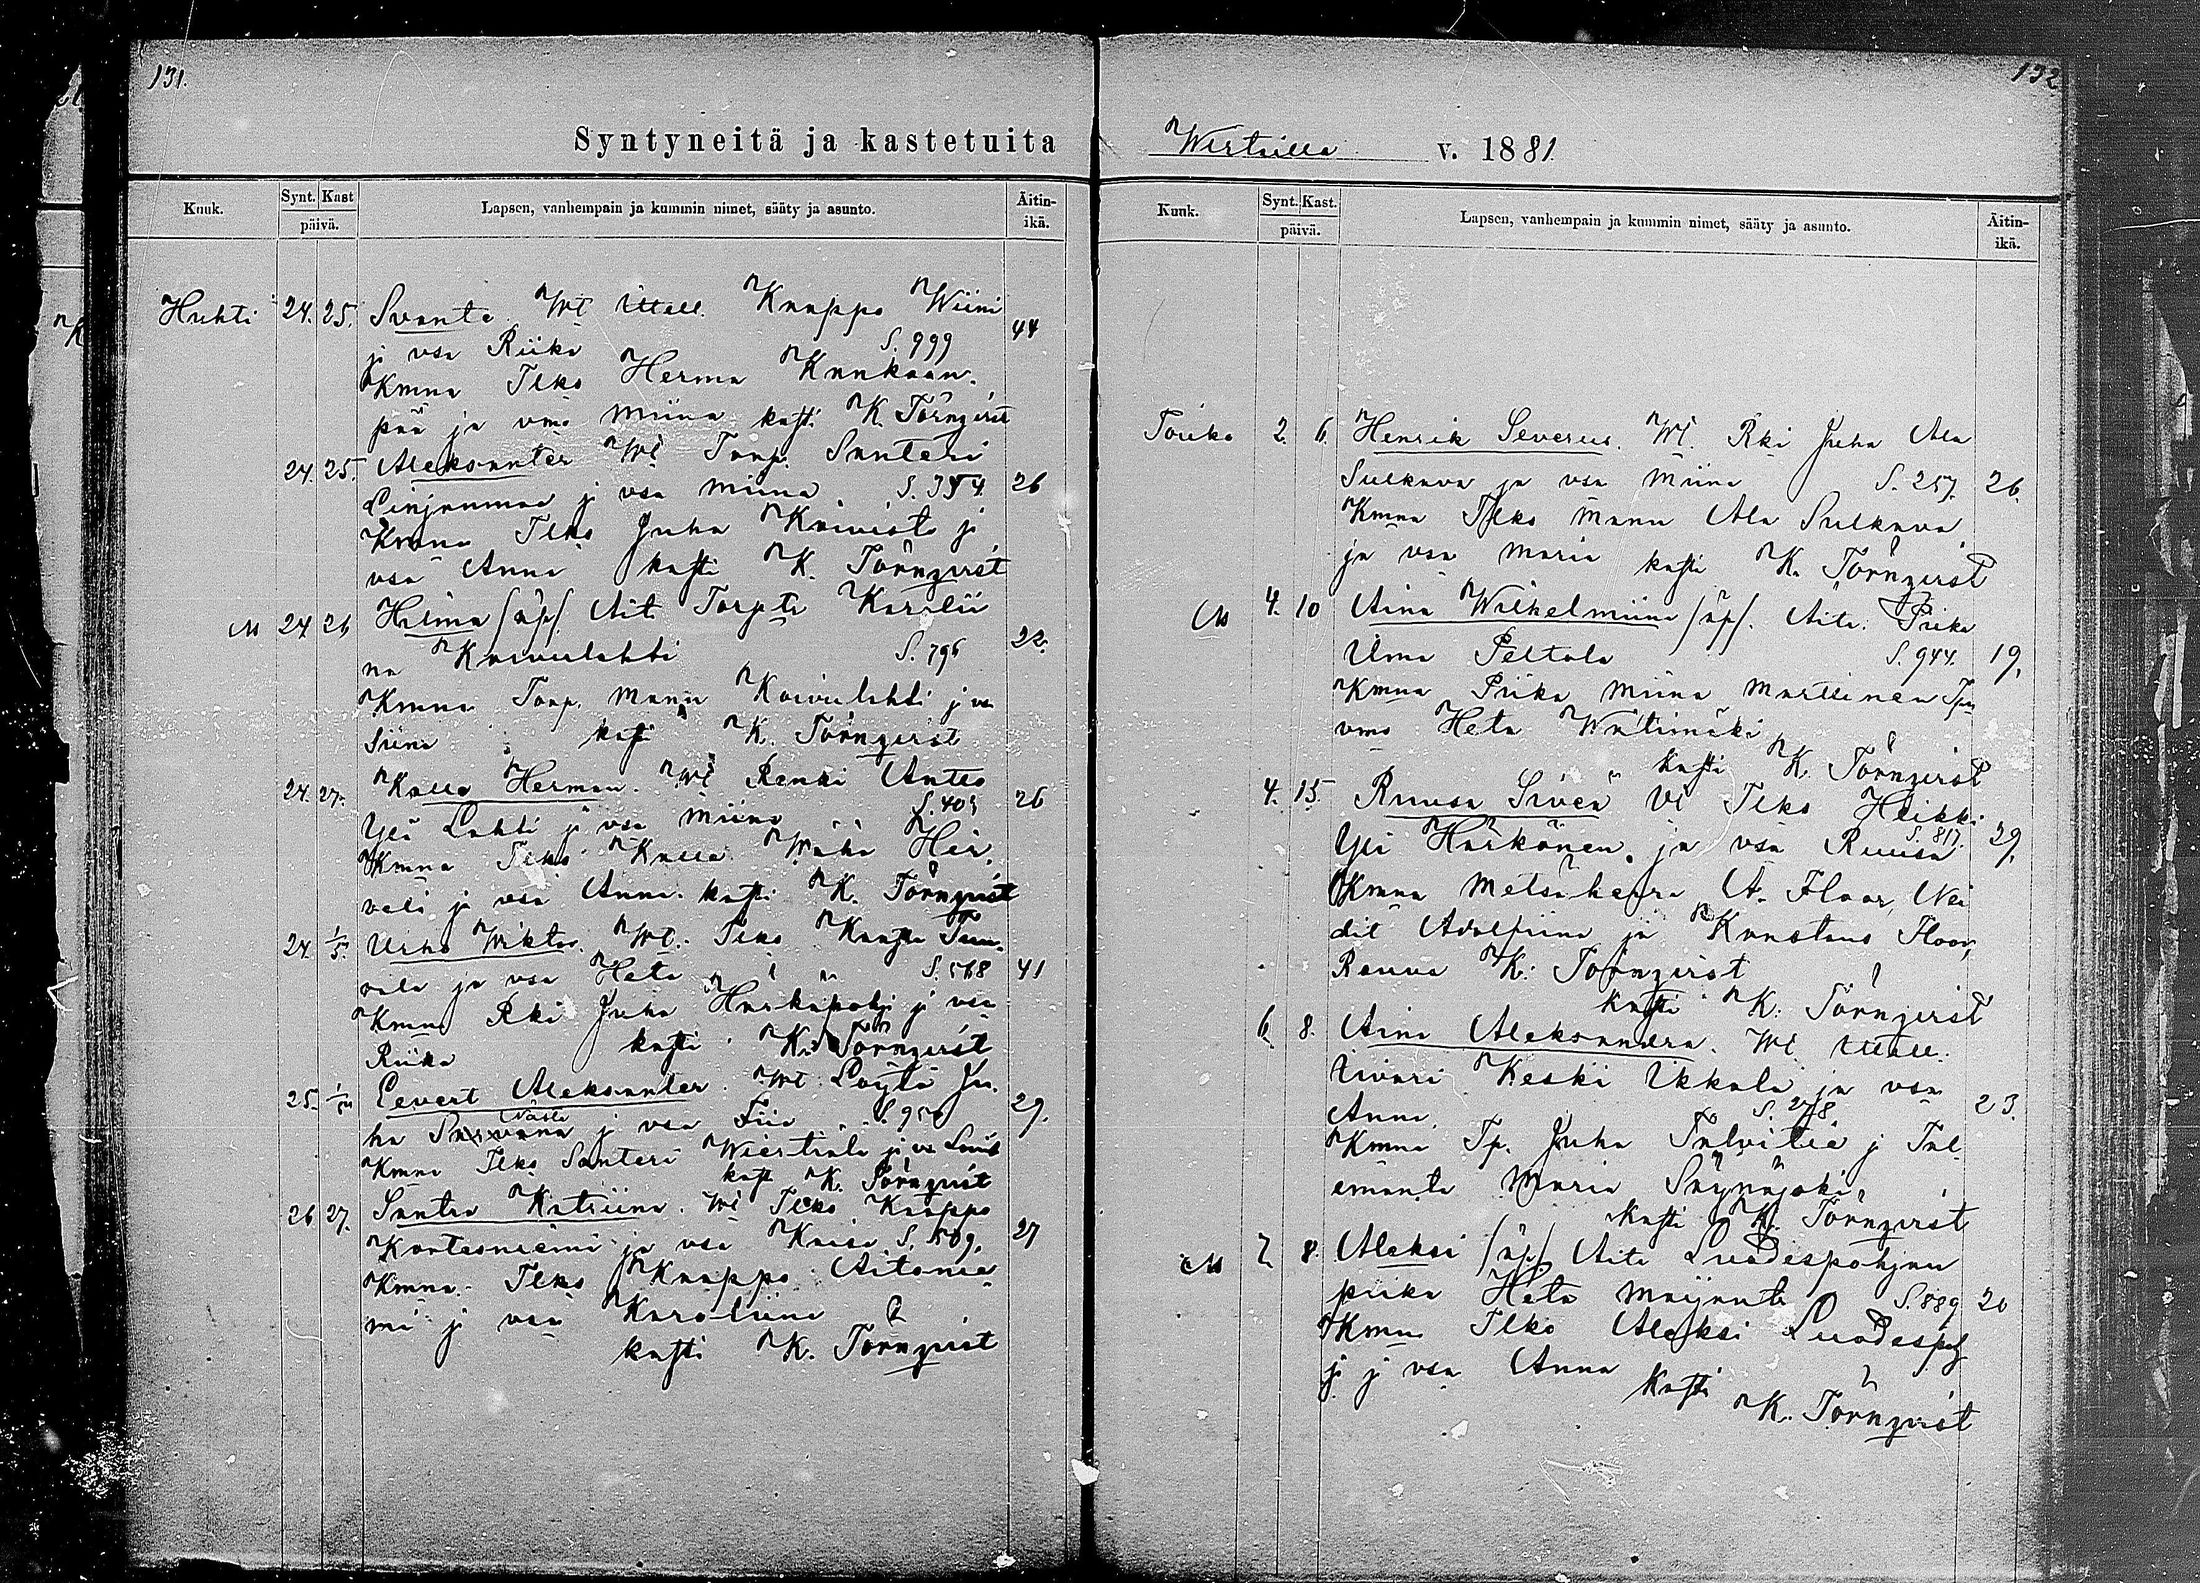 131.
Syntyneitä ja kastetuita
Kuuk.
Synt. Kast
päivä.
Lapsen, vanhempain ja kummin nimet, sääty ja asunto.
Äitin-
ikä.
Huhti 24. 25. Svante. Wt Itsell. Knappo Wiini 44
j vsa Riika S. 999
Kmna Tlks Herma Kankaan-
pää ja vmo Miina kasti K. Törnqvist
24. 25. Aleksanter Wt Torp. Santeri
Linjanmaa j vsa Miina. S. 354. 26
Kmna Tlks Juha Koivisto j
vsa Anna kasti K. Törnqvist
M 24 26 Hilma /äp/. Äit. Torpti Karolii
na Koivulahti S. 796 22.
Kmna Torp. Manu Koivulahti j va
Siina kasti K. Törnqvist
24. 27. Kalle Herman. Wt Renki Anto
Yli Lahti j vsa Miina S. 405 26
Kmna Tlks Kalle Wähä Hir
velä j vsa Anna. kasti K. Törnqvist
24. 1/5. Urho Wiktor. Wt. Tlks
vala ja vsa Heta S. 568 41
Kmna Rki Juha Harkapohj j vsa
Riika kasti K. Törnqvist
25. 1/5 Eevert Aleksanter. Wt. Löytä Ju-
ha j vsa Fiia S. 950 29.
Kmna Tlks Santeri Wiertola j va
kast K. Törnqvist
26 27. Santra Katriina. Wt Tlks Kaappo
Kortesniemi ja vsa Kaisa S. 509. 27
Kmna. Tlks Kaappo Aitonie
mi j vsa Karoliina
kasti K. Törnqvist
132
v. 1881.
Kuuk.
Synt. Kast.
päivä.
Lapsen, vanhempain ja kummin nimet, sääty ja asunto.
Äitin-
ikä.
Touko 2. 6. Henrik Severus. Wt. Rki Juha Ala
Sulkava ja vsa Miina S. 257. 26.
Kmna Tlks Manu Ala Sulkava
ja vsa Maria kasti K. Törnqvist
M 4. 10 Aina Wilhelmiina /äp/. Äiti. Piika
Ulma Peltola S. 944. 19.
Kmna Piika Miina Marttinen
vmo Heta Wälimäki
kasti K. Törnqvist
4. 15. Ruusa Siveä Wt Tlks Heikki
Yli Härkönen. ja vsa Ruusa S. 817. 29.
Kmna Metsäherra A. Floor, Nei
dit Adolfiina ja Konstans Floor,
Rouva K. Törnqvist
kasti K. Törnqvist
6. 8. Aina Aleksandra. Wt Itsell.
Iivari Keski Ikkala ja vsa
Anna. S. 278 23.
Kmna Tp. Juha Talvitie j Tal
emäntä Maria Säynäjoki
kasti K. Törnqvist
M 7 8. Aleksi /äp/ Äiti Luodespohjan
piika Heta Maijanti S. 889 20
Kmna Tlks Aleksi Luodespoh
ji j vsa Anna kasti
K. Törnqvist